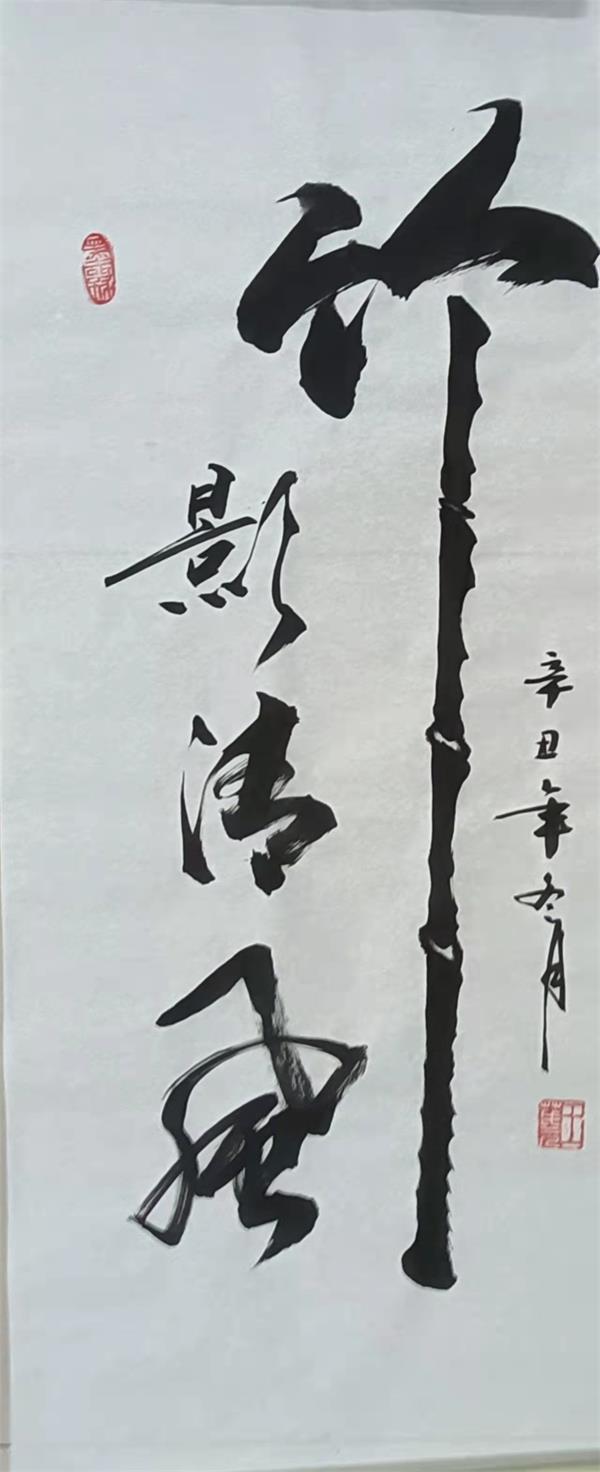 竹影清风
辛丑年冬月